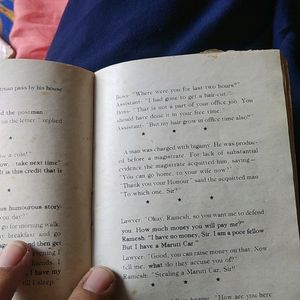 tman pass by his house
d the postman.
on the letter" replied
e a coin!"
ow.. take next time"
It is this credit that is
us humourous story-
you day?"
go for morning walk.
y breakfast and go
and then get
evening I
friends. I
I have my
ll I sleep.
Boss- "Where were you for last two hours?"
Assistant- "I had gone to get a hair-cut."
Boss- "That is not a part of your office job. You
should have done it in your free time."
Assistant- "But my hair grow in office time also!"
* * *
A man was charged with bigamy. He was produc-
ed before a magistrate. For lack of substantial
evidence the magistrate acquitted him, saying -
"You can go home, to your wife now?"
"Thank you your Honour" said the acquitted man
"To which one, Sir?"
* * *
Lawyer: "Okay, Ramesh, so you want me to defend
you. How much money you will pay me?"
Ramesh: "I have no money, Sir. I am a poor fellow
But I have a Maruti Car."
Lawyer: "Good; you can raise money on that. Now
tell me, what do they accuse you of?"
Ramesh: "Stealing a Maruti Car, Sir!"
* *
"How are you here